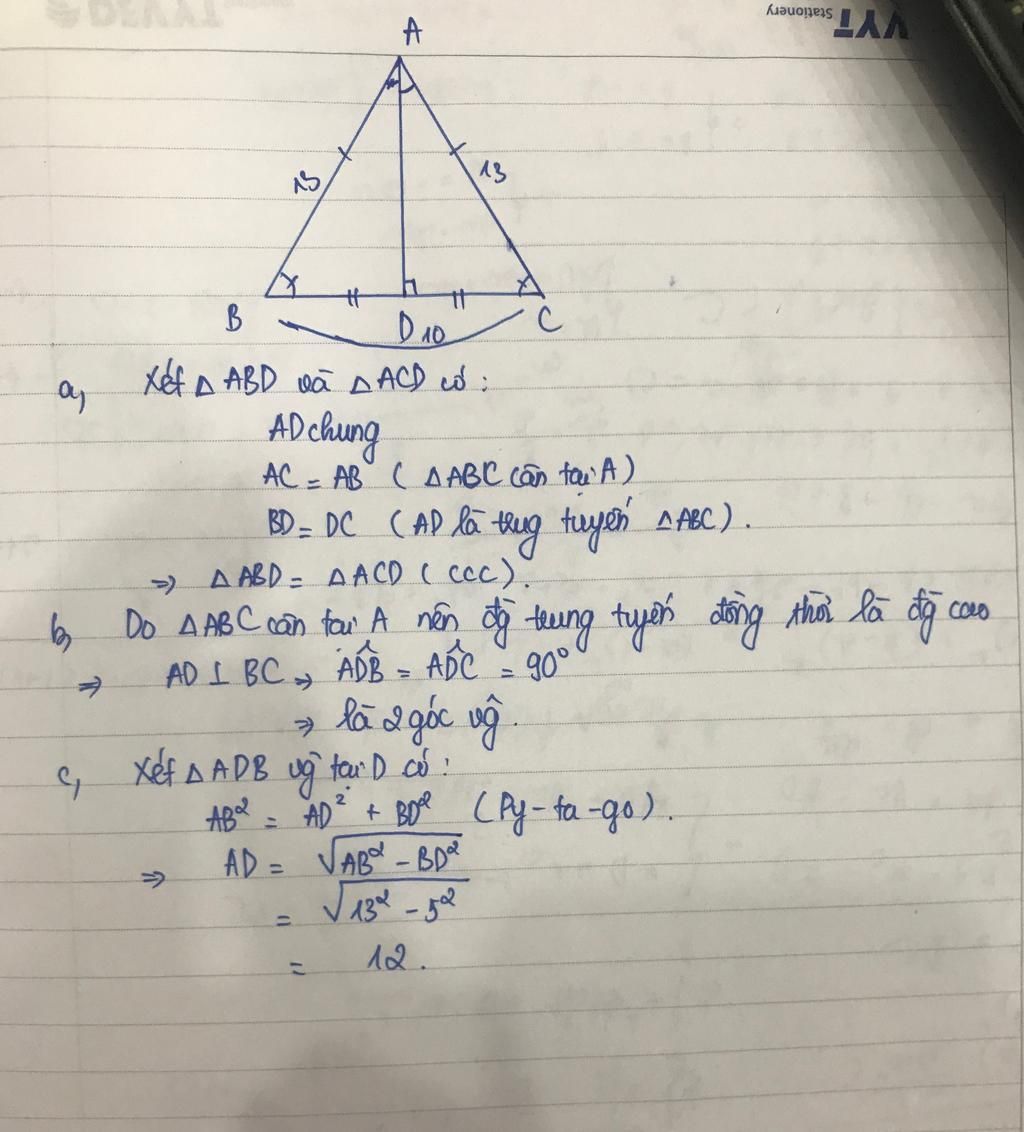 VYT
Stationery
A
13
13
B
D
10
C
a, Xét △ ABD và △ ACD có :
AD chung
AC = AB ( △ ABC cân tại A)
BD = DC (AD là trug tuyến △ ABC).
⇒ △ ABD = △ ACD ( ccc).
b, Do △ ABC cân tại A nên đg̀ trung tuyến đồng thời là đg̀ cao
⇒ AD ⊥ BC ⇒ AD̂B = AD̂C = 90°
⇒ là 2 góc vĝ.
c, Xét △ ADB vĝ tại D có :
AB² = AD² + BD² (Py-ta-go).
⇒ AD = √AB² - BD²
= √13² - 5²
= 12.